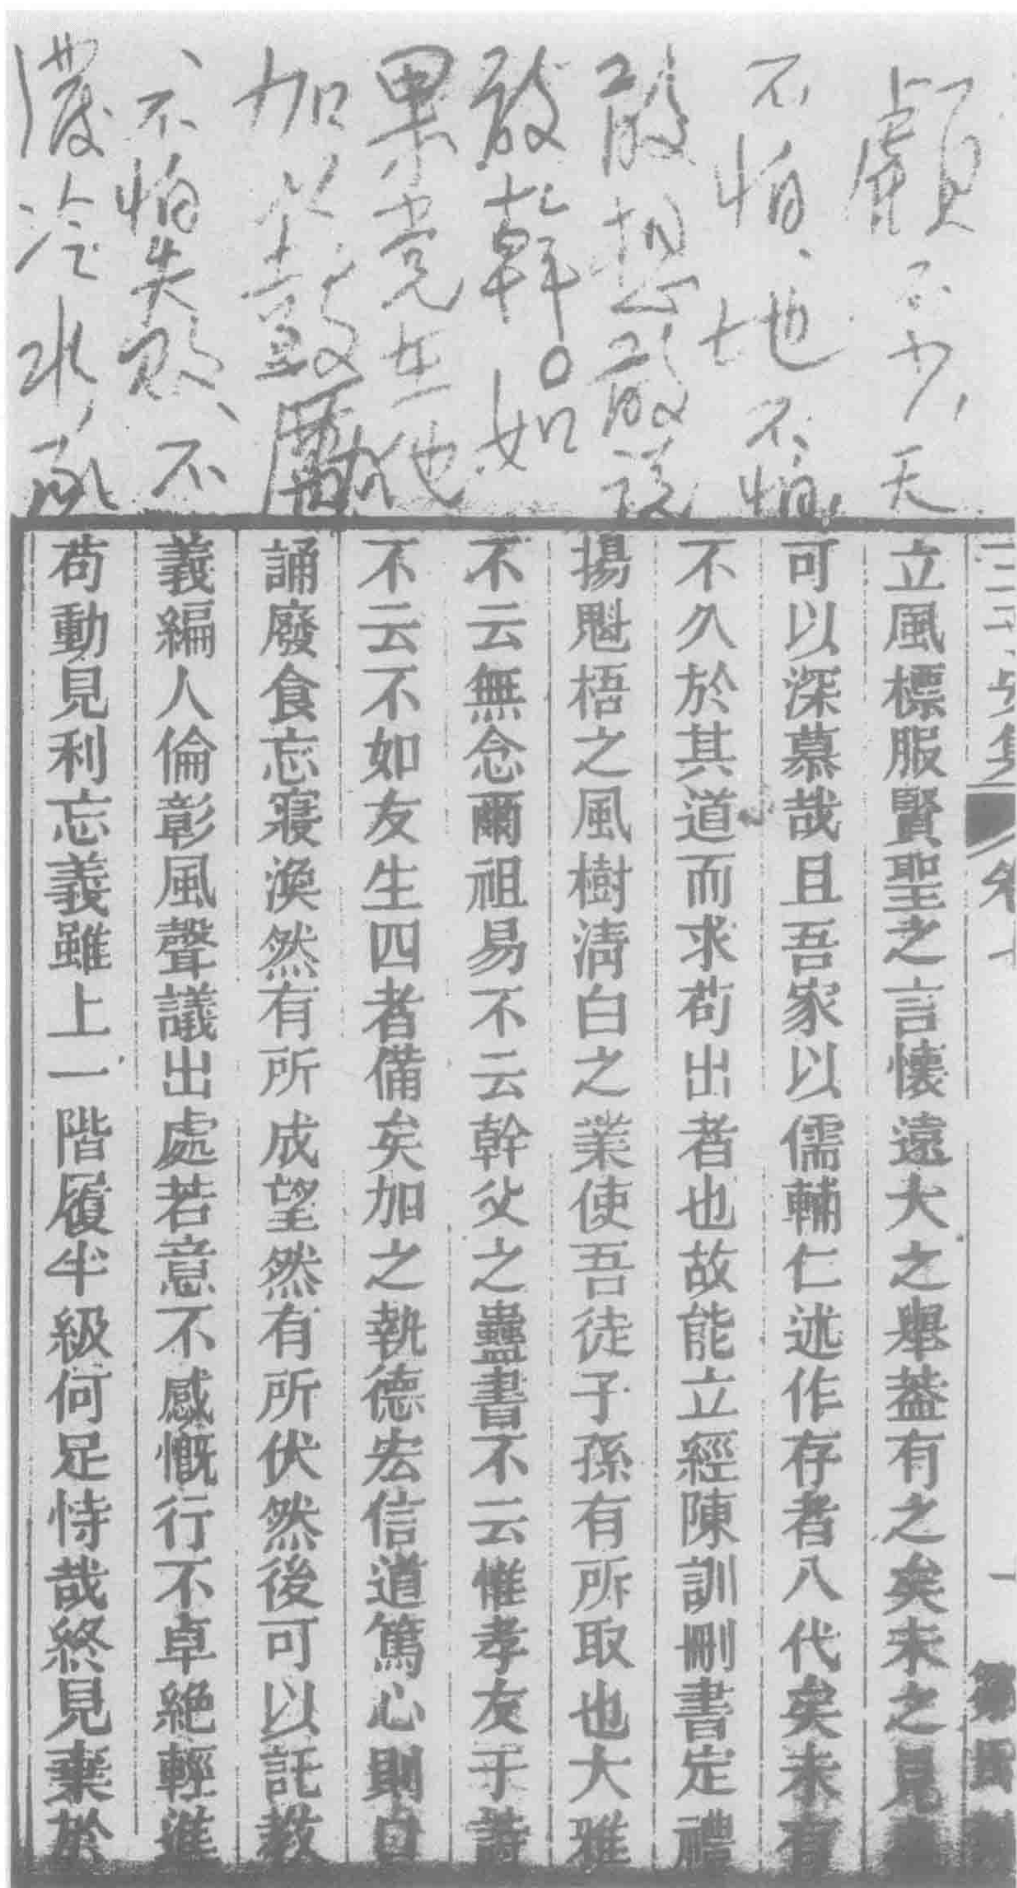 顧不少,天
不怕、地不怕,
敢想敢說
敢幹。如
果党在他
加以鼓勵
不怕失败、不
潑冷水,承
立風標服賢聖之言懷遠大之舉蓋有之矣未之見
可以深慕哉且吾家以儒輔仁述作存者八代矣未有
不久於其道而求苟出者也故能立經陳訓刪書定禮
揚魁梧之風樹清白之業使吾徒子孫有所取也大雅
不云無念爾祖易不云幹父之蠱書不云惟孝友于詩
不云不如友生四者備矣加之執德宏信道篤心則口
誦廢食忘寢渙然有所成望然有所伏然後可以託教
義編人倫彰風聲議出處若意不感慨行不卓絕輕進
苟動見利忘義雖上一階履半級何足恃哉終見棄於